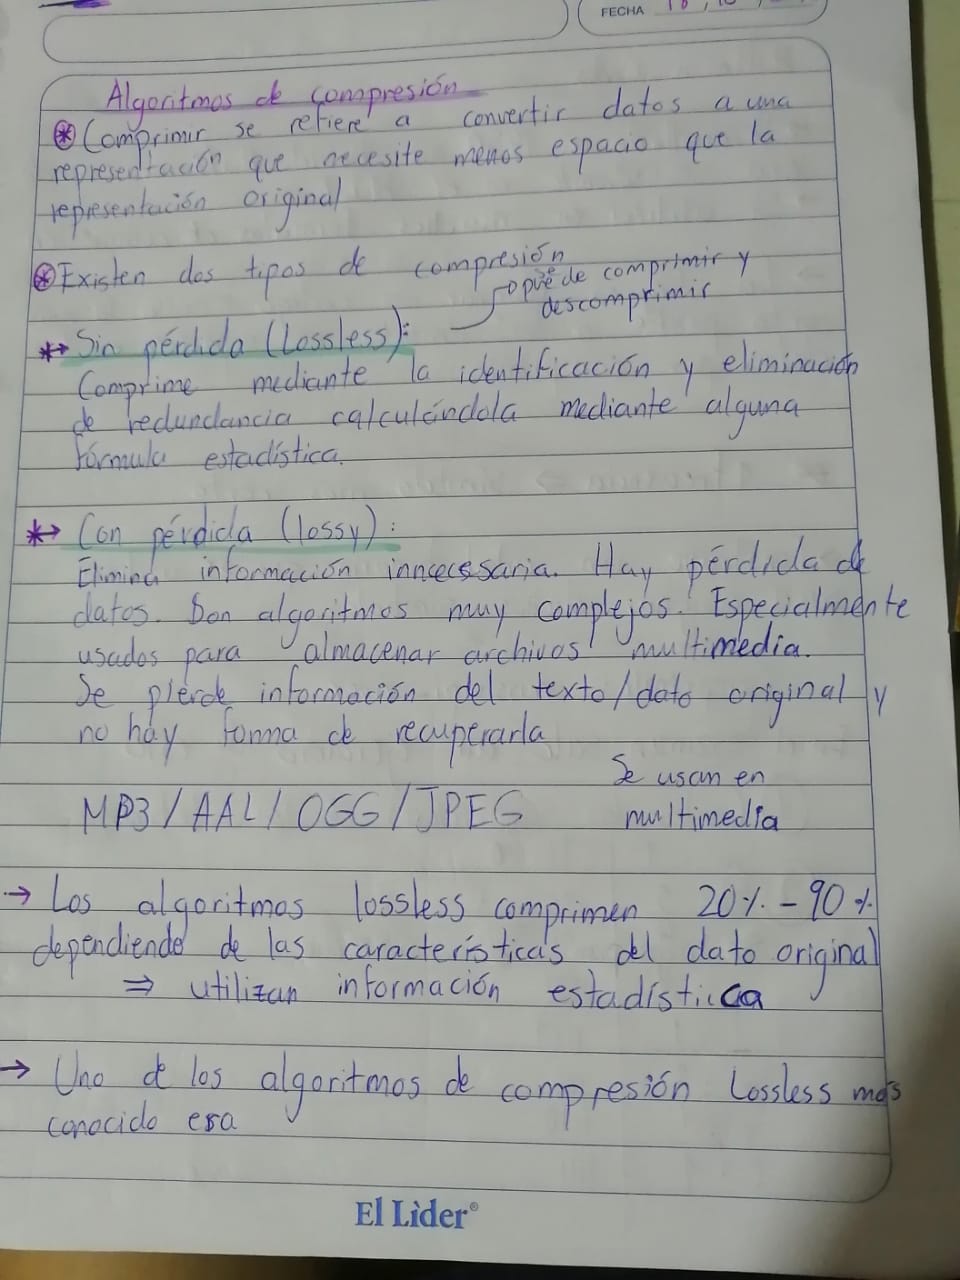 FECHA
Algoritmos de compresión
Comprimir se refiere a convertir datos a una
representación que necesite menos espacio que la
representación original
Existen dos tipos de compresión
puede comprimir y
descomprimir
Sin pérdida (Lossless):
Comprime mediante la identificación y eliminación
de redundancia calculándola mediante alguna
fórmula estadística.
Con pérdida (lossy):
Elimina información innecesaria. Hay pérdida de
datos. Son algoritmos muy complejos. Especialmente
usados para almacenar archivos multimedia.
Se pierde información del texto/dato original y
no hay forma de recuperarla
Se usan en
MP3/AAL/OGG/JPEG multimedia
→ Los algoritmos lossless comprimen 20% - 90%
dependiendo de las características del dato original
⇒ utilizan información estadística
→ Uno de los algoritmos de compresión Lossless más
conocido esa
El Lìder®